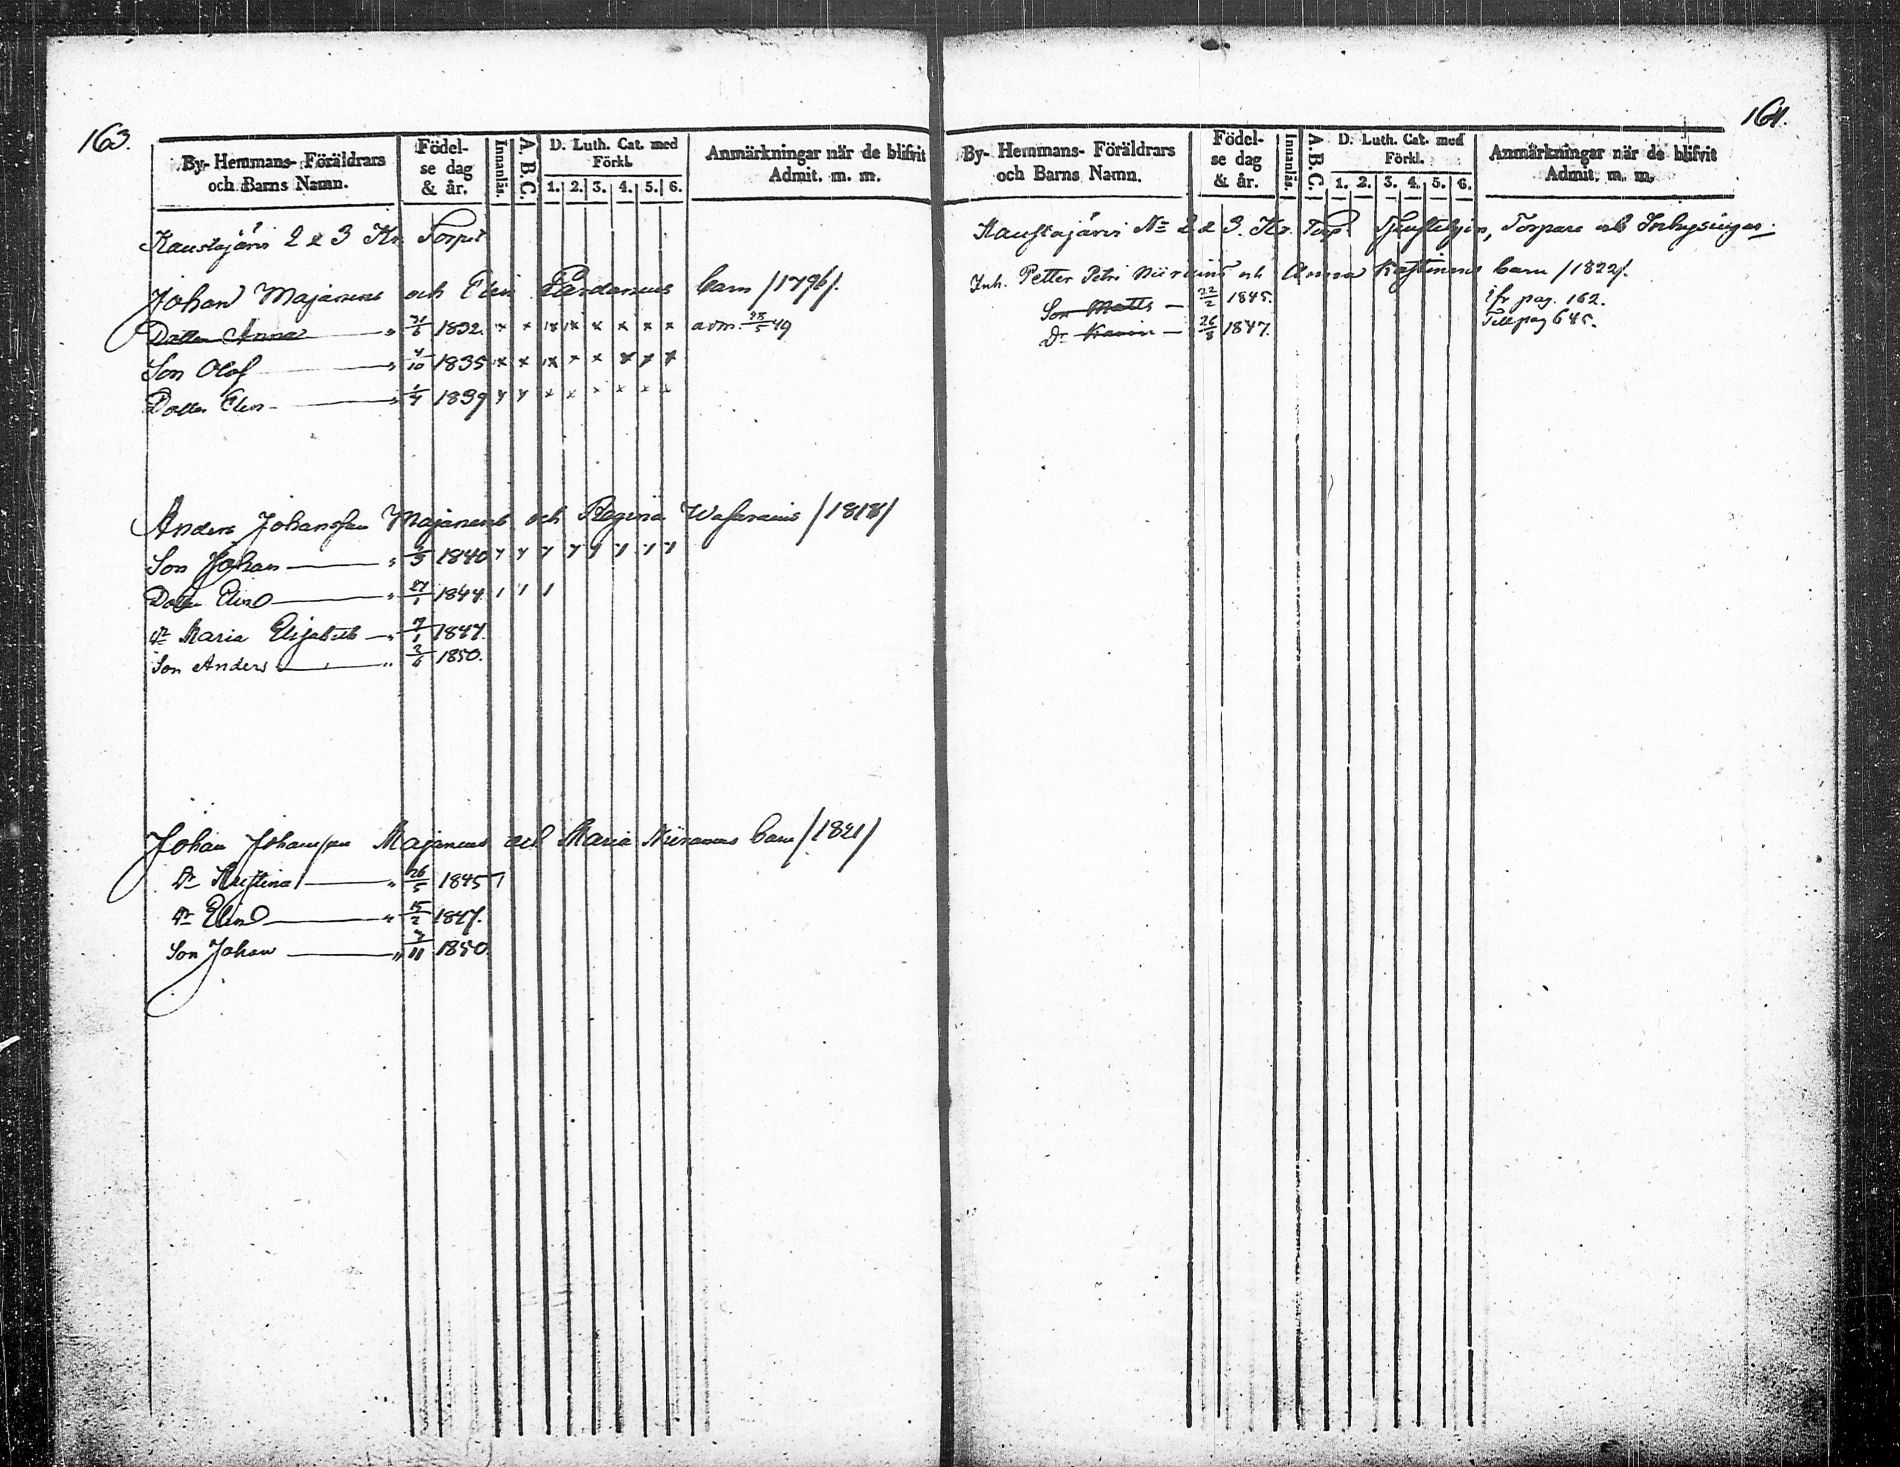 163.
By- Hemmans- Föräldrars och Barns Namn.
Födel- se dag & år.
Innanläs.
A. B. C.
D. Luth. Cat. med Förkl.
1. 2. 3. 4. 5. 6.
Anmärkningar när de blifvit Admit. m. m.
Kaustajärvi 2 & 3 Kr. Torpet
Johan Majanens och Elin barn /1796/.
Dotter Anna " 21/6 1832. x x x x x x x x adm. 28/5 49
Son Olof " 4/10 1835 x x x x x x x x
Dotter Elin " 1/4 1839 x x x x x x x x
Anders Johansson Majanens och Regina /1818/
Son Johan " /3 1840
Dotter Elin " 27/1 1844. 1 1 1
Dr Maria Elisabeth " 7/1 1847.
Son Anders " 3/6 1850.
Johan Johansson Majanens och Maria Niiranens barn /1821/
Dr Kristina " 26/5 1845
Dr Elin " 15/2 1847.
Son Johan " 7/11 1850
164.
By- Hemmans- Föräldrars och Barns Namn.
Födel- se dag & år.
Innanläs.
A. B. C.
D. Luth. Cat. med Förkl.
1. 2. 3. 4. 5. 6.
Anmärkningar när de blifvit Admit. m. m.
Kaustajärvi No 2 & 3. Kr. Torp Tjenstehjon, Torpare och Inhysingar.
Inh. Petter Petri och Anna barn /1822/.
Son Matts 22/2 1845. jfr pag. 162.
Dr Karin 26/8 1847. Till pag 645.